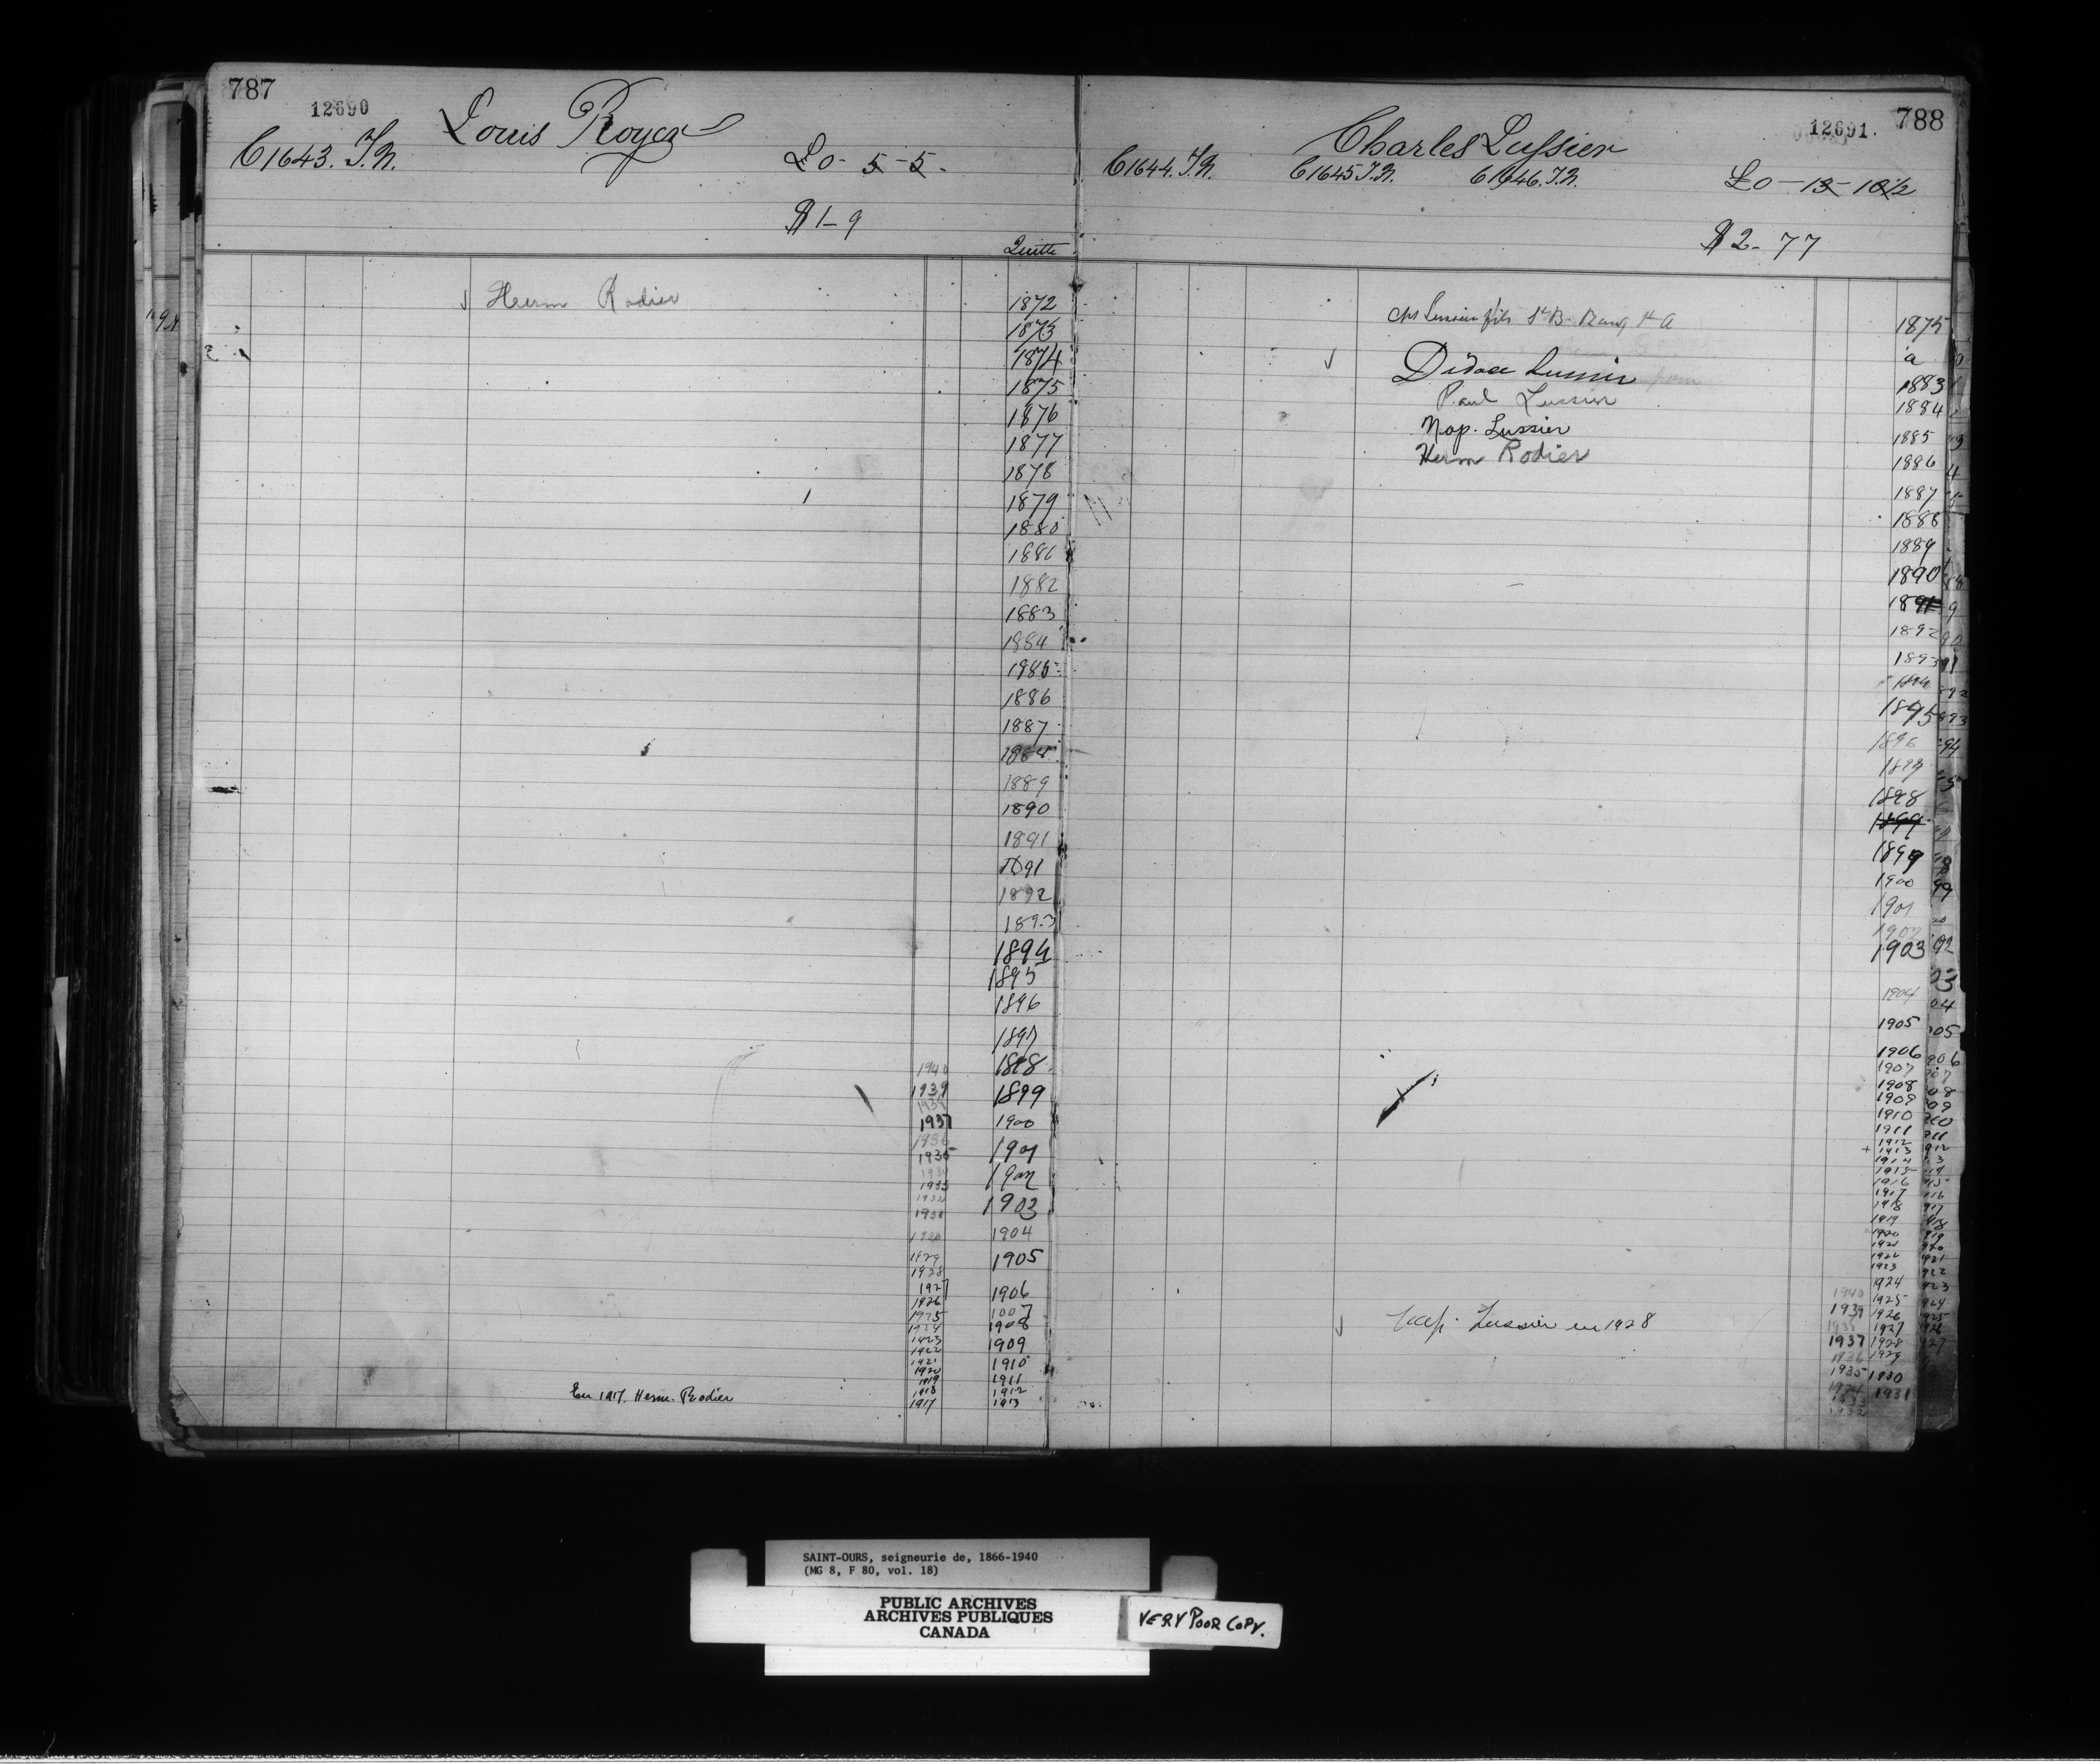 787
12690
Louis Royer
C1643. T.N.
£0-5-5.
$1-9
Quitte
Herm Rodier
1872
1873
1874
1875
1876
1877
1878
1879
1880
1881
1882
1883
1884
1885
1886
1887
1889
1890
1891
1891
1892
1893
1894
1895
1896
1897
1940 1898
1939 1899
1938
1937 1900
1936
1935 1901
1934
1933 1902
1932
1931 1903
1930 1904
1929 1905
1928
1927 1906
1926
1925 1907
1924 1908
1923 1909
1922
1921 1910
1920
1919 1911
En 1917. Herm. Rodier 1918 1912
1917 1913
788
12691.
Charles Lussier
C1644. T.N. C1645 T.N. C1646. T.N.
£0-13-10½
$2-77
Chs Lussier fils
1875
a
Didace Lussier 1883
Paul Lussier 1884
Nap. Lussier 1885
Herm Rodier 1886
1887
1888
1889
1890
1891
1892
1893
1894
1895
1896
1897
1898
1899
1899
1900
1901
1902
1903
1904
1905
1906
1907
1908
1909
1910
1911
1912
1913
1914
1915
1916
1917
1918
1919
1920
1921
1922
1923
1924
1940 1925
1939 1926
Nap. Lussier en 1928
1938 1927
1937 1928
1936 1929
1935 1930
1934 1931
1933
1932
SAINT-OURS, seigneurie de, 1866-1940
(MG 8, F 80, vol. 18)
PUBLIC ARCHIVES
ARCHIVES PUBLIQUES
CANADA
VERY POOR COPY.